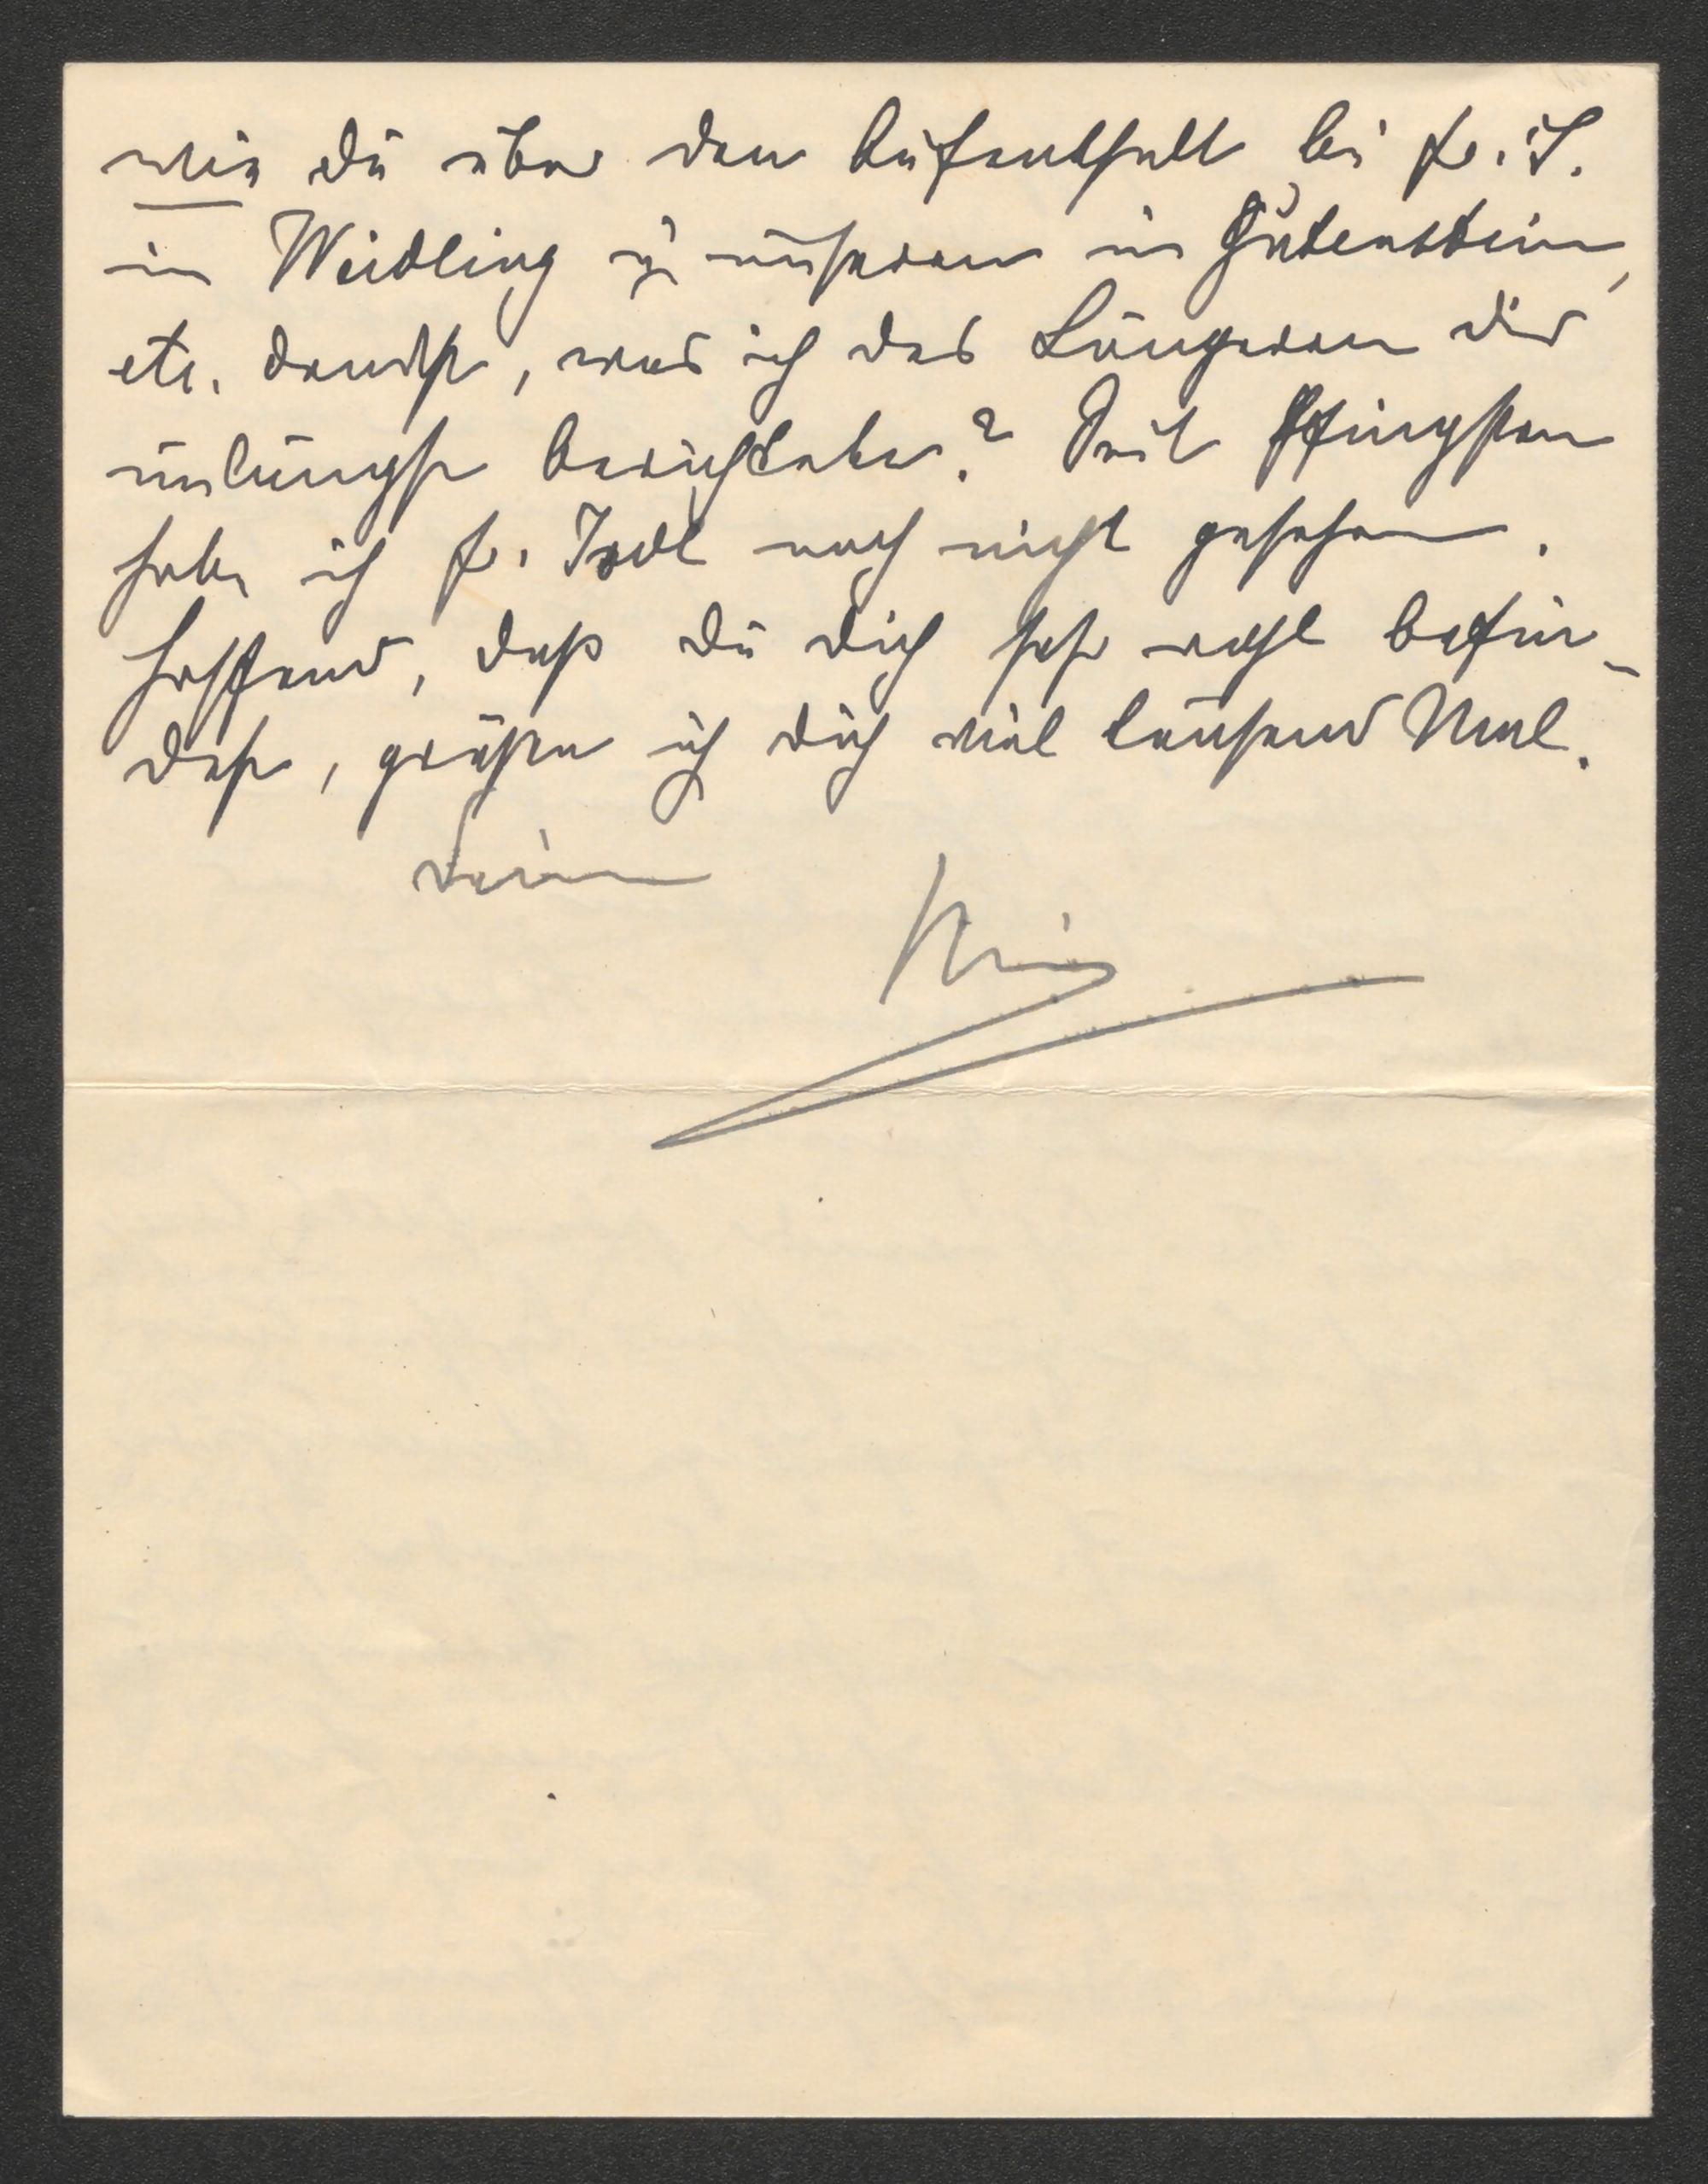 wie du über den Aufenthalt bei Fr. J.
in Weidling u. unseren in Gutenstein,
etc. denkst, was ich des Längeren dir
unlängst berichtete? Seit Pfingsten
habe ich Fr. Jodl noch nicht gesehen.
Hoffend, daß du dich sehr wohl befin-
dest, grüße ich dich viel tausend Mal.
Deine